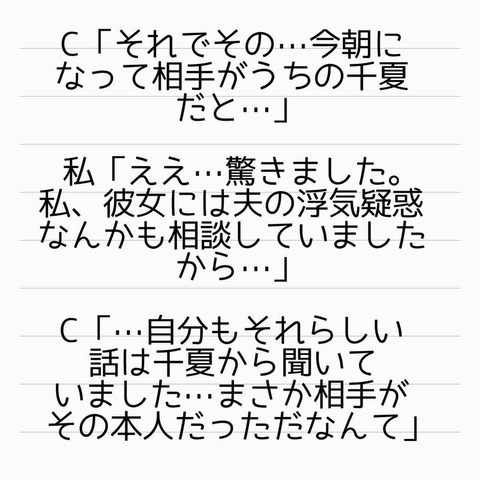 C「それでその…今朝に
なって相手がうちの千夏
だと…」
私「ええ…驚きました。
私、彼女には夫の浮気疑惑
なんかも相談していました
から…」
C「…自分もそれらしい
話は千夏から聞いて
いました…まさか相手が
その本人だっただなんて」